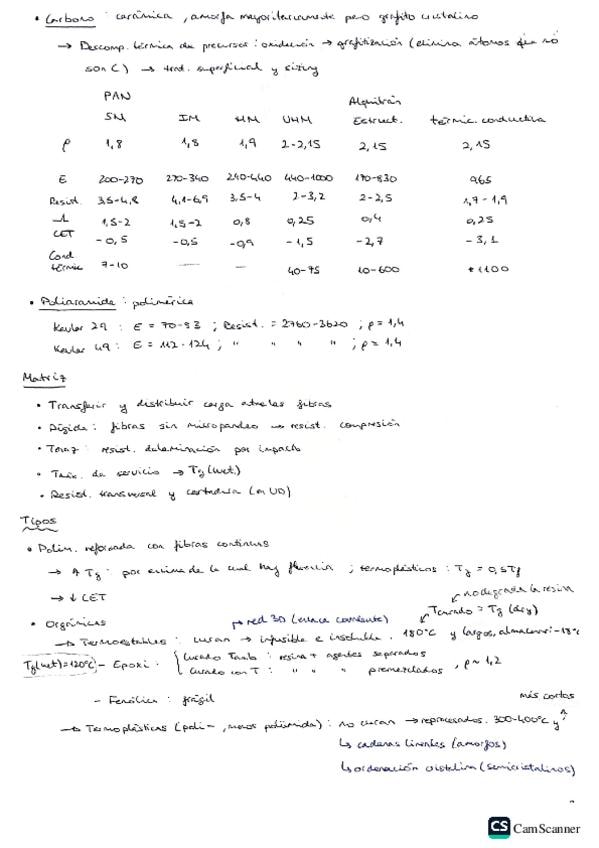 • Carbono : cerámica, amorfa mayoritariamente pero grafito cristalino
→ Descomp. térmica de precursor : oxidación → grafitización (elimina átomos que no
son C) → trat. superficial y sizing
PAN
SM IM HM UHM Alquitrán Estruct. térmic. conductiva
ρ 1,8 1,8 1,9 2-2,15 2,15 2,15
E 200-270 270-340 240-440 440-1000 170-830 965
Resist. 3,5-4,8 4,1-6,9 3,5-4 2-3,2 2-2,5 1,7-1,9
1,5-2 1,5-2 0,8 0,25 0,4 0,25
CET -0,5 -0,5 -0,9 -1,5 -2,7 -3,1
Cond térmic 7-10 — — 40-75 10-600 1100
• Poliaramida : polimérica
Kevlar 29 : E = 70-83 ; Resist. = 2760-3620 ; ρ = 1,4
Kevlar 49 : E = 112-124 ; " " " " ; ρ = 1,4
Matriz
• Transferir y distribuir carga a las fibras
• Rígida : fibras sin micropandeo → resist. compresión
• Tenaz : resist. delaminación por impacto
• Tmáx. de servicio → Tg (wet)
• Resist. transversal y cortadura (en UD)
Tipos
• Polim. reforzada con fibras continuas
→ ↑ Tg : por encima de la cual hay fluencia ; termoplásticos : Tg = 0,5Tf
→ ↓ CET
no degrada la resina
• Orgánicas
→ red 3D (enlace covalente)
Tcurado = Tg (dry)
→ Termoestables : curan → infusible e insoluble. 180°C y largos, almacenar -18°C
Tg(wet)=120°C - Epoxi : curado Tamb : resina + agentes separados
curado con T : " " " premezclados, ρ ~ 1,2
- Fenólica : frágil
más cortos
→ Termoplásticas (poli-, menos poliimida) : no curan → reprocesados. 300-400°C y
↳ cadenas lineales (amorfos)
↳ ordenación cristalina (semicristalinos)
CS CamScanner